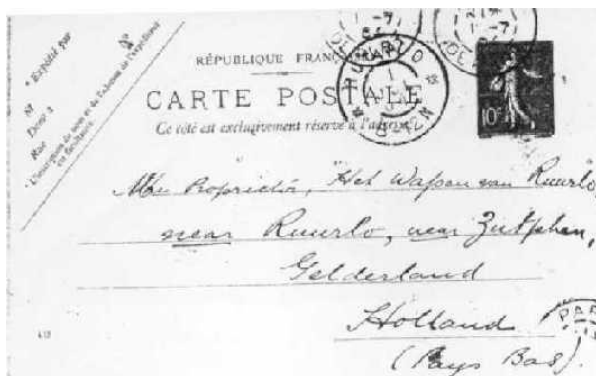 * Expédié par
M
Dem t
Rue
* L'inscription du nom et de l'adresse de l'expéditeur
est facultative.
RÉPUBLIQUE FRANÇ
CARTE POSTALE
Ce côté est exclusivement réservé à l'adresse
10
The Proprietor, Het Wapen van Ruurlo,
near Ruurlo, near Zutphen,
Gelderland
Holland
(Pays Bas).
PAR